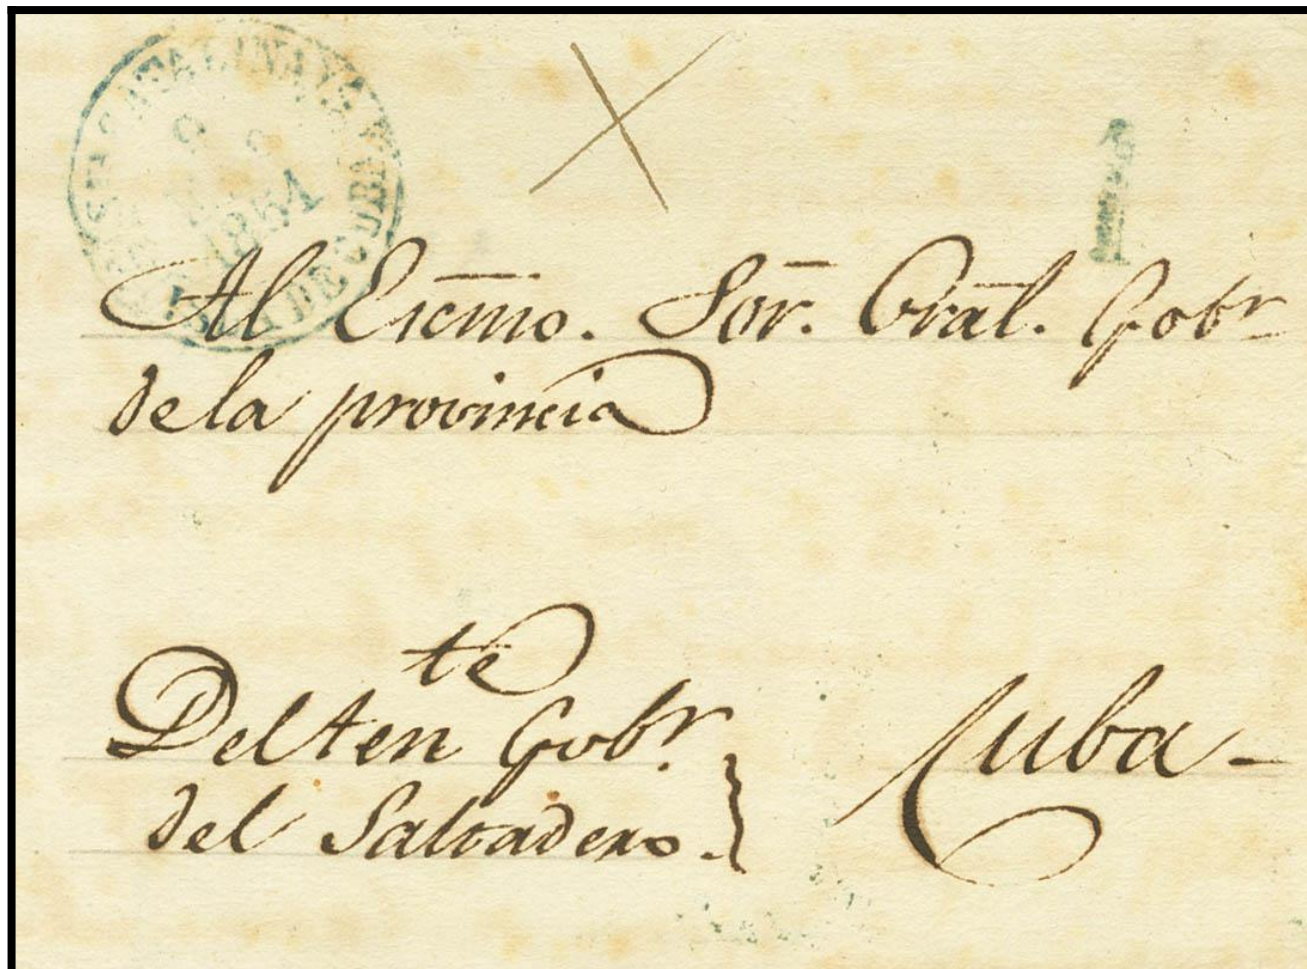 1851
1
Al Escmo. Sor. Gral. Gobr
de la provincia
Del ten te Gobr.
del Saltadero.
Cuba